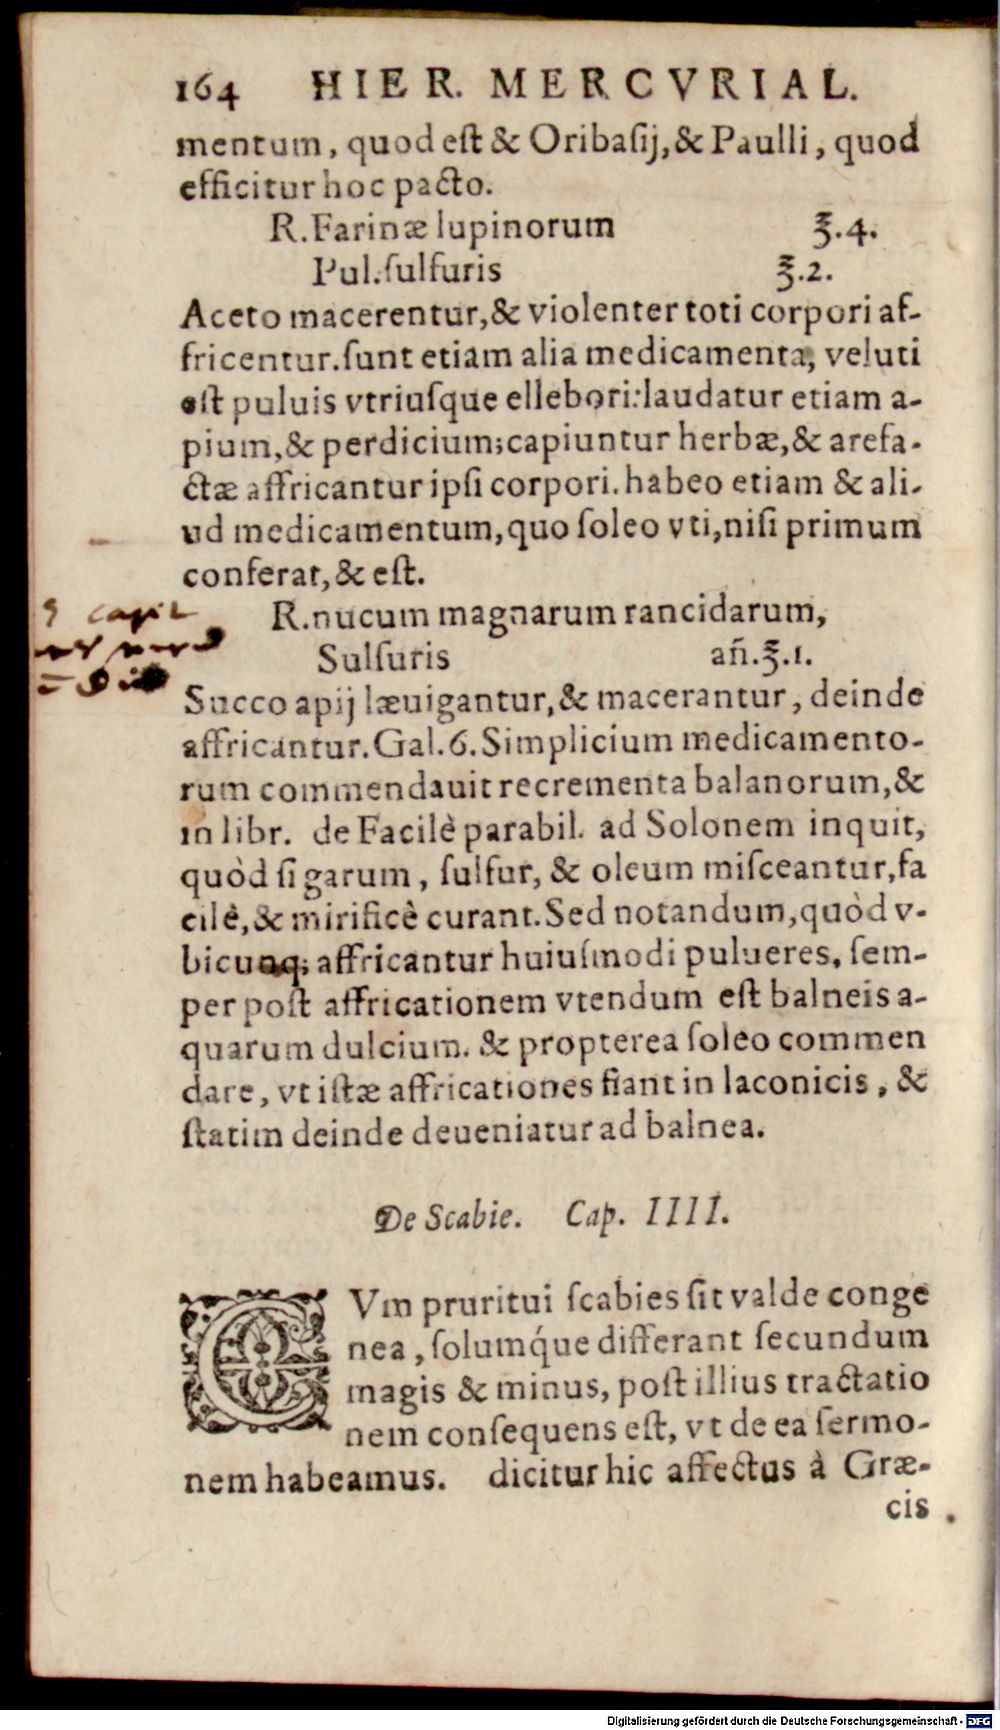 164 HIER. MERCVRIAL.
mentum, quod eſt & Oribaſij, & Paulli, quod
efficitur hoc pacto.
R. Farinæ lupinorum ℥.4.
Pul. ſulfuris ℥.2.
Aceto macerentur, & violenter toti corpori af-
fricentur. ſunt etiam alia medicamenta, veluti
eſt puluis vtriuſque ellebori: laudatur etiam a-
pium, & perdicium; capiuntur herbæ, & arefa-
ctæ affricantur ipſi corpori. habeo etiam & ali-
ud medicamentum, quo ſoleo vti, niſi primum
conferat, & eſt.
R. nucum magnarum rancidarum,
Sulfuris añ.℥.1.
Succo apij læuigantur, & macerantur, deinde
affricantur. Gal. 6. Simplicium medicamento-
rum commendauit recrementa balanorum, &
in libr. de Facilè parabil. ad Solonem inquit,
quòd ſi garum, ſulfur, & oleum miſceantur, fa
cilè, & mirificè curant. Sed notandum, quòd v-
bicunq; affricantur huiuſmodi pulueres, ſem-
per poſt affricationem vtendum eſt balneis a-
quarum dulcium. & propterea ſoleo commen
dare, vt iſtæ affricationes fiant in laconicis, &
ſtatim deinde deueniatur ad balnea.
De Scabie. Cap. IIII.
CVm pruritui ſcabies ſit valde conge
nea, ſolumq́ue differant ſecundum
magis & minus, poſt illius tractatio
nem conſequens eſt, vt de ea ſermo-
nem habeamus. dicitur hic affectus à Græ-
cis
Digitalisierung gefördert durch die Deutsche Forschungsgemeinschaft - DFG